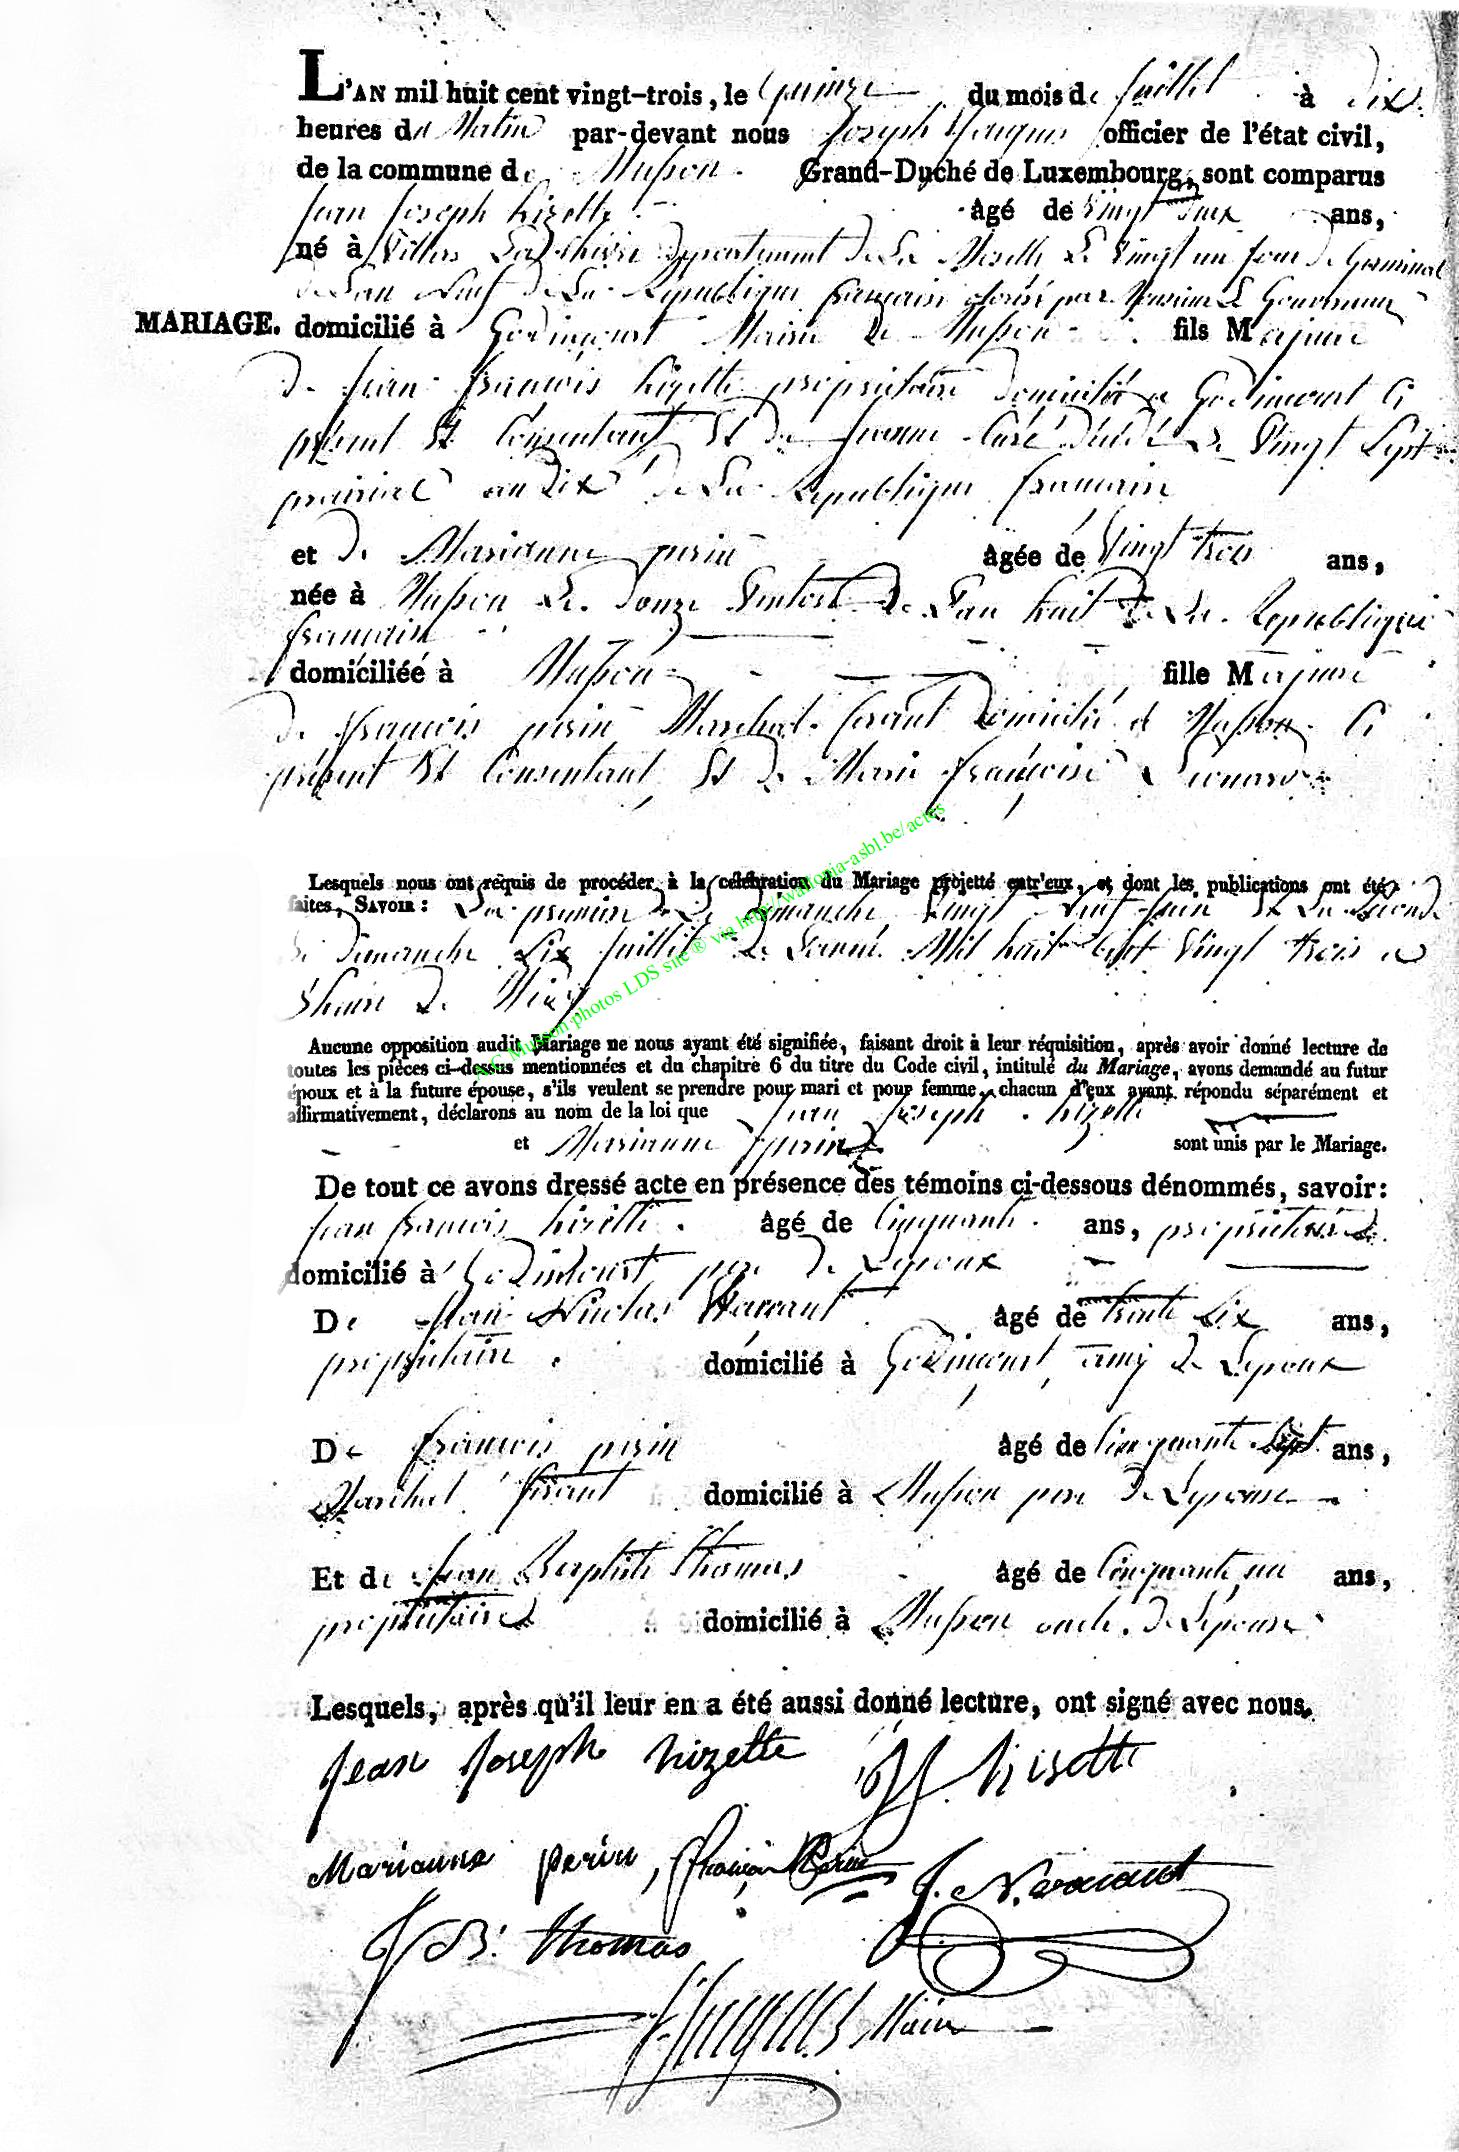 L'AN mil huit cent vingt-trois, le quinze du mois de juillet à dix
heures du Matin par-devant nous Joseph officier de l'état civil,
de la commune de Musson Grand-Duché de Luxembourg, sont comparus
Jean Joseph hizette âgé de Vingt deux ans,
né à Villers La chèvre département de La Moselle Le Vingt un jour de Germinal
de L'an Neuf de La République français par Le Gouverneur
MARIAGE. domicilié à Godincourt Mairie de Musson fils Majeur
de Jean françois hizette propriétaire domicilié a Godincourt Ci
présent Et Consentant Et de Jeanne décédé Le Vingt Sept
prairial an dix de La République français
et de Marianne perin âgée de Vingt trois ans,
née à Musson Le douze Ventose de L'an huit de La République
français
domiciliéé à Musson fille Majeure
de françois perin Marchal ferant domicilié à Musson Ci
présent Et Consentant Et de Marie françoise Leonard
Lesquels nous ont requis de procéder à la célébration du Mariage projetté entr'eux, et dont les publications ont été
faites, SAVOIR : La premier Le dimanche Vingt Neuf Juin Et La Seconde
Le dimanche Six Juillet de L'année Mil huit Cent Vingt trois a
L'heure de Midy
Aucune opposition audit Mariage ne nous ayant été signifiée, faisant droit à leur réquisition, après avoir donné lecture de
toutes les pièces ci-dessus mentionnées et du chapitre 6 du titre du Code civil, intitulé du Mariage, avons demandé au futur
époux et à la future épouse, s'ils veulent se prendre pour mari et pour femme, chacun d'eux ayant répondu séparément et
affirmativement, déclarons au nom de la loi que Jean Joseph hizette
et Marianne perin sont unis par le Mariage.
De tout ce avons dressé acte en présence des témoins ci-dessous dénommés, savoir :
Jean françois hizette âgé de Cinquante ans, propriétaire
domicilié à Godincourt pere de Lepoux
De Jean Nicolas âgé de trente Six ans,
propriétaire domicilié à Godincourt, amy de Lepoux
De françois perin âgé de Cinquante Sept ans,
Marchal ferant domicilié à Musson pere de Lepouse
Et de Jean Baptiste thomas âgé de Cinquante un ans,
propriétaire domicilié à Musson oncle de Lepouse
Lesquels, après qu'il leur en a été aussi donné lecture, ont signé avec nous.
Jean Joseph hizette JF hisette
Marianne perin, françois Perin J. N.
J B. thomas
Maire
AC Musson photos LDS site ® via http://wallonia-asbl.be/actes